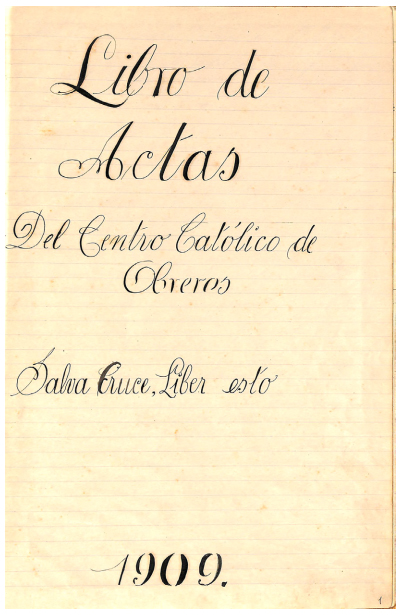 Libro de
Actas
Del Centro Católico de
Obreros
Salva Cruce, Liber esto
1909.
1